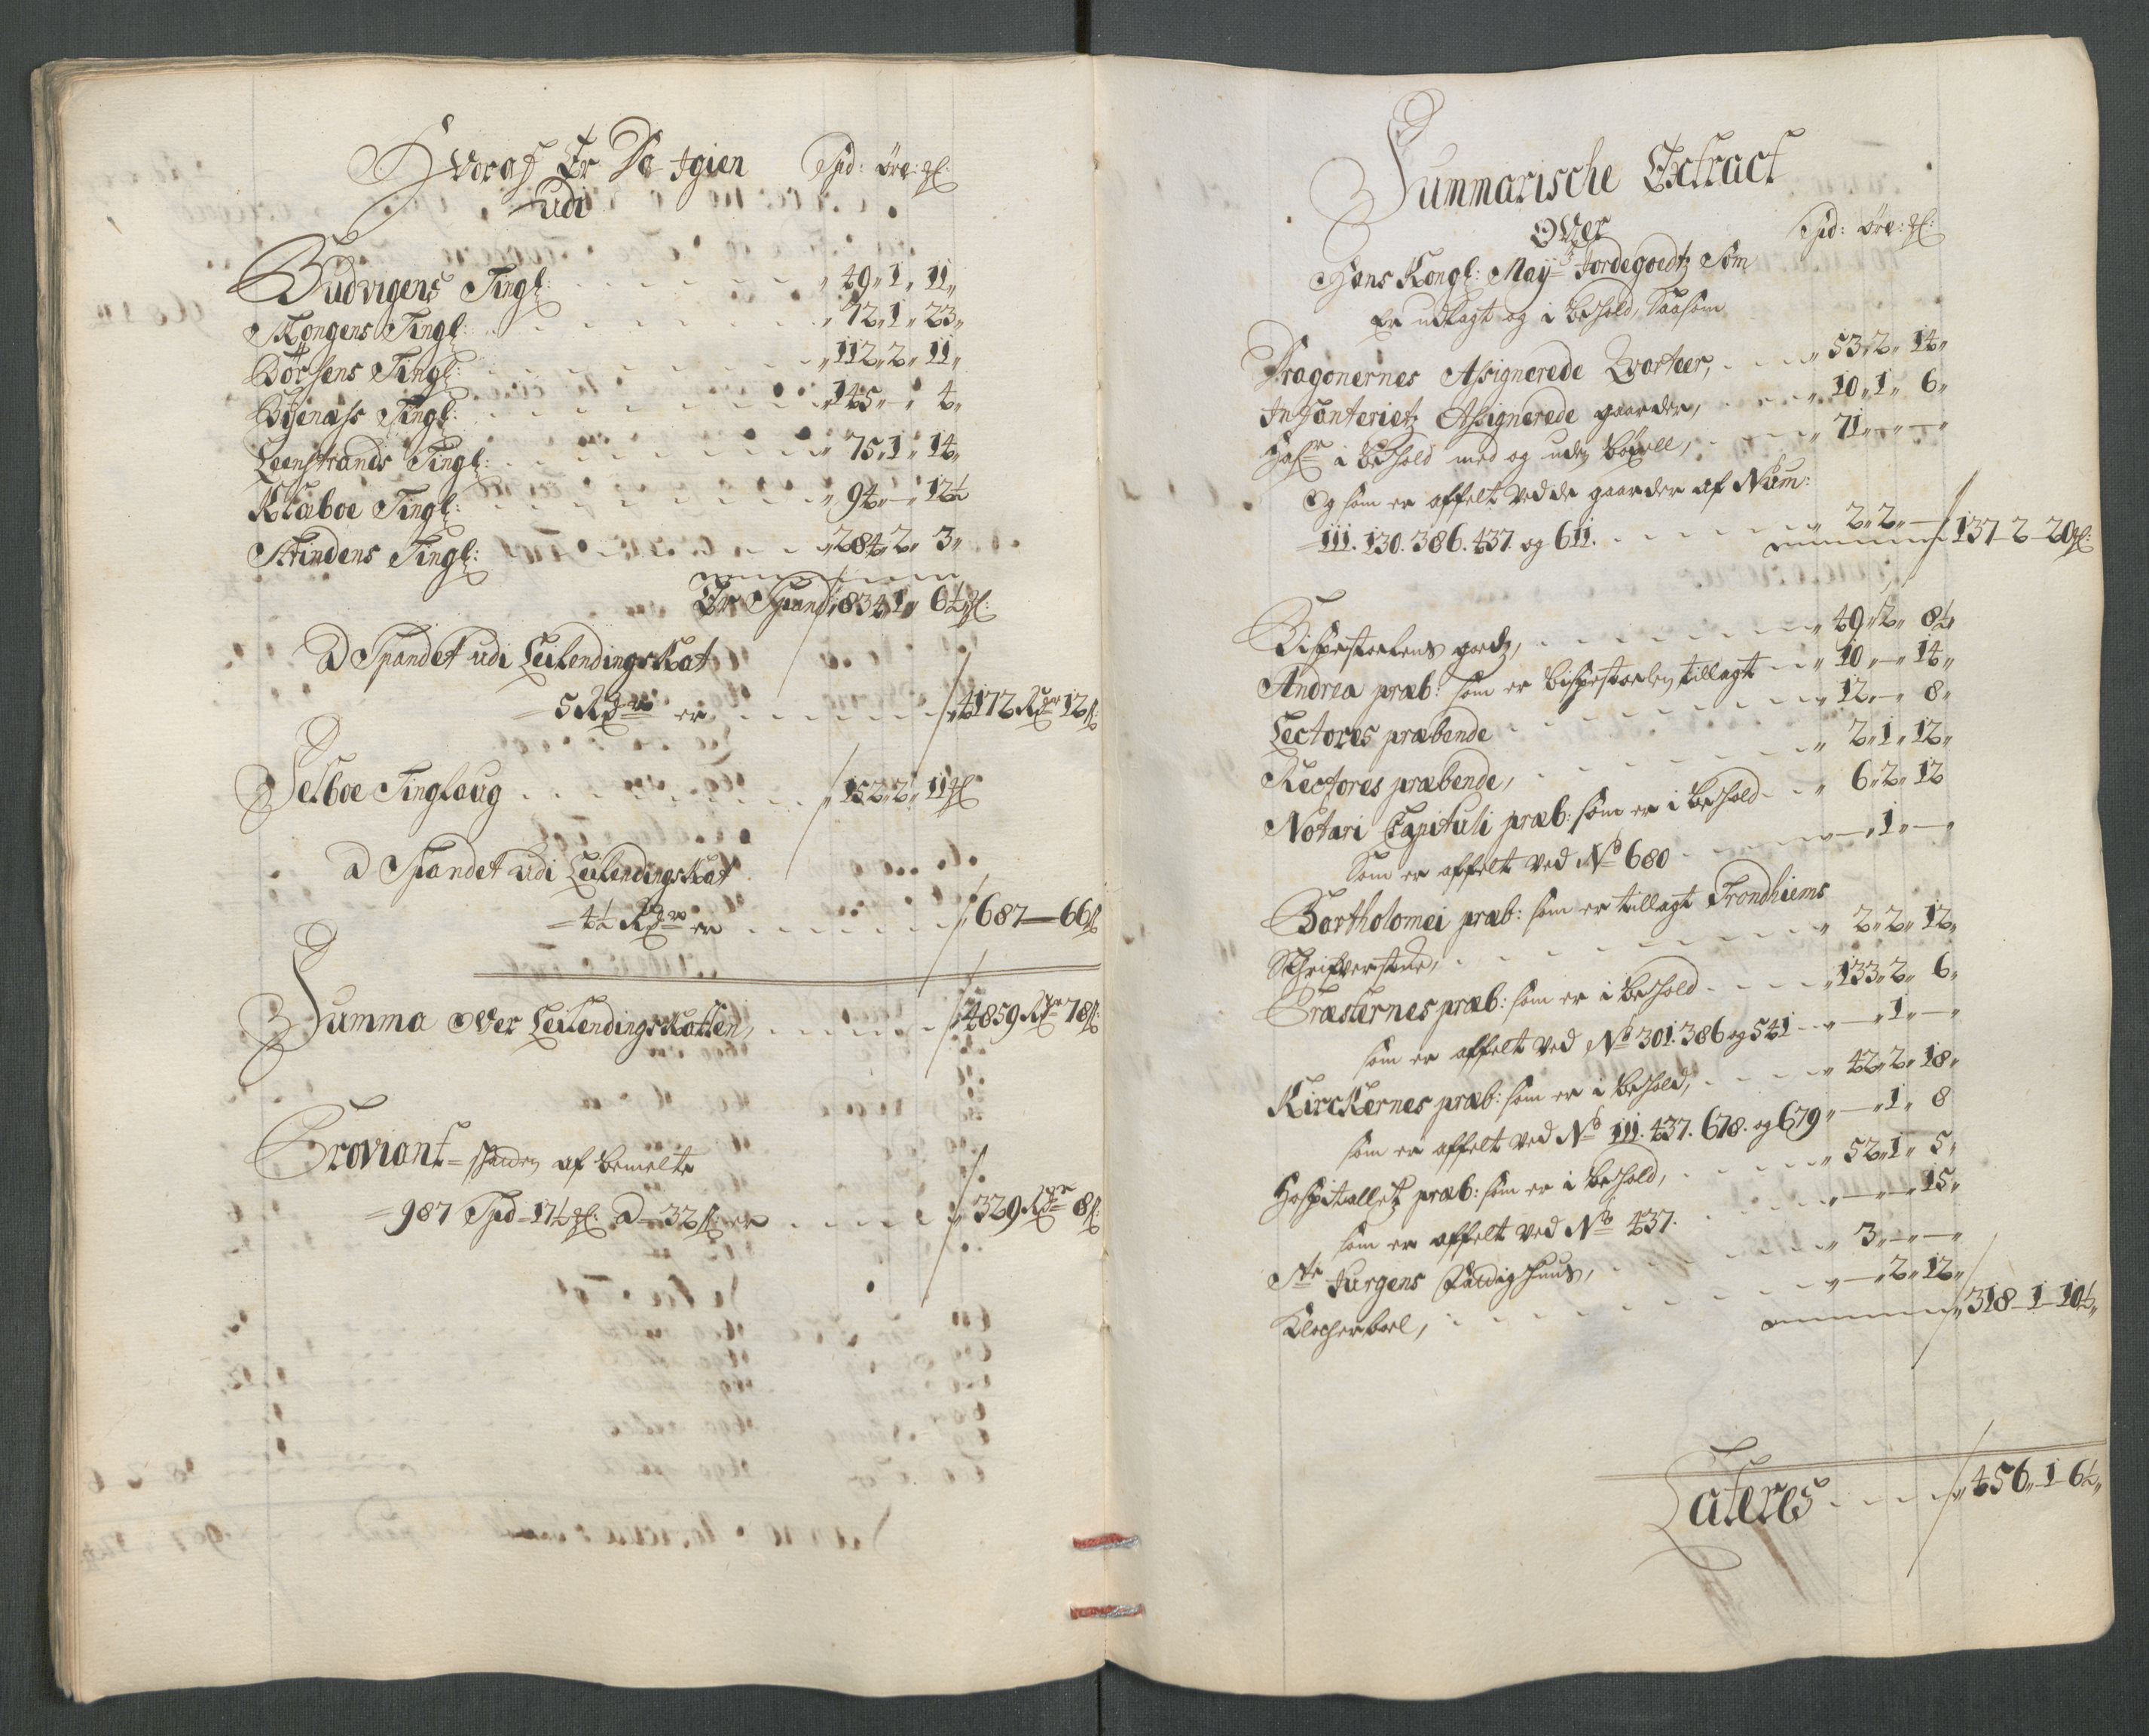 Hvoraf Er Sa-tgien Spd: öre: gl:
udi
Budvigens Tingl: 49 " 1 " 11 "
Kongens Tingl: 72 " 1 " 23 "
Börsens Tingl: 112 " 2 " 11 "
Byenæss Tingl: 145 " — " 4 "
Leenstrands Tingl: 75 " 1 " 14 "
Klæboe Tingl: 94 " — " 12½
Strindens Tingl: 284 " 2 " 3 "
Er Spand 834 " 1 " 6½ gl:
a Spandet udi LeilendingsKat
5 Rdr er 4172 Rdr 12 s:
Selboe Tinglaug 152 " 2 " 11 gl
a Spandet udi LeilendingsKat
4½ Rdr er 687 — 66 s
Summa Over LeilendingsKatten, 4859 Rdr 78 s:
Proviant = skatten af bemelte
987 Spd – 17½ gl: a 32 s: er 329 Rdr 8 s:
Summarische Extract
Over Spd: öre: gl:
Hans Kongl: Mayts Jordegoedtz Som
Er udlagt og i behold, Saasom
Dragonernes Assignerede Qvarteer, 53 " 2 " 14 "
Infanteriets Assignerede gaarder, 10 " 1 " 6 "
i behold med og uden böxell, 71 " — " — "
Og som er affelt ved de gaarder af Num:
111. 130. 386. 437. og 611. 2 " 2 " — 137 – 2 – 20 gl:
Bispestoelens goedz, 49 " 2 " 8½
Andrea præb: som er bispestoelen tillagt 10 " — " 14 "
Lectores præbende 12 " — " 8 "
Rectores præbende, 2 " 1 " 12 "
Notari Capituli præb: som er i behold 6 " 2 " 12
Som er affelt ved No 680 — " 1 " — "
Bartholomei præb: som er tillagt Trondhiems
2 " 2 " 12 "
Præsternes præb: som er i behold 133 " 2 " 6 "
som er affelt ved No 301. 386 og 541 — " 1 " — "
Kirckernes præb: som er i behold, 42 " 2 " 18 "
som er affelt ved No 111. 437. 678. og 679 " — " 1 " 8
Hospitallets præb: som er i behold, 52 " 1 " 5 "
som er affelt ved No 437. — " — " 15 "
Ste Jürgens Fattighuus, 3 " — " — "
Klocherboel, — " 2 " 12 "
318 – 1 – 10½ "
Lateres 456 " 1 – 6½ "